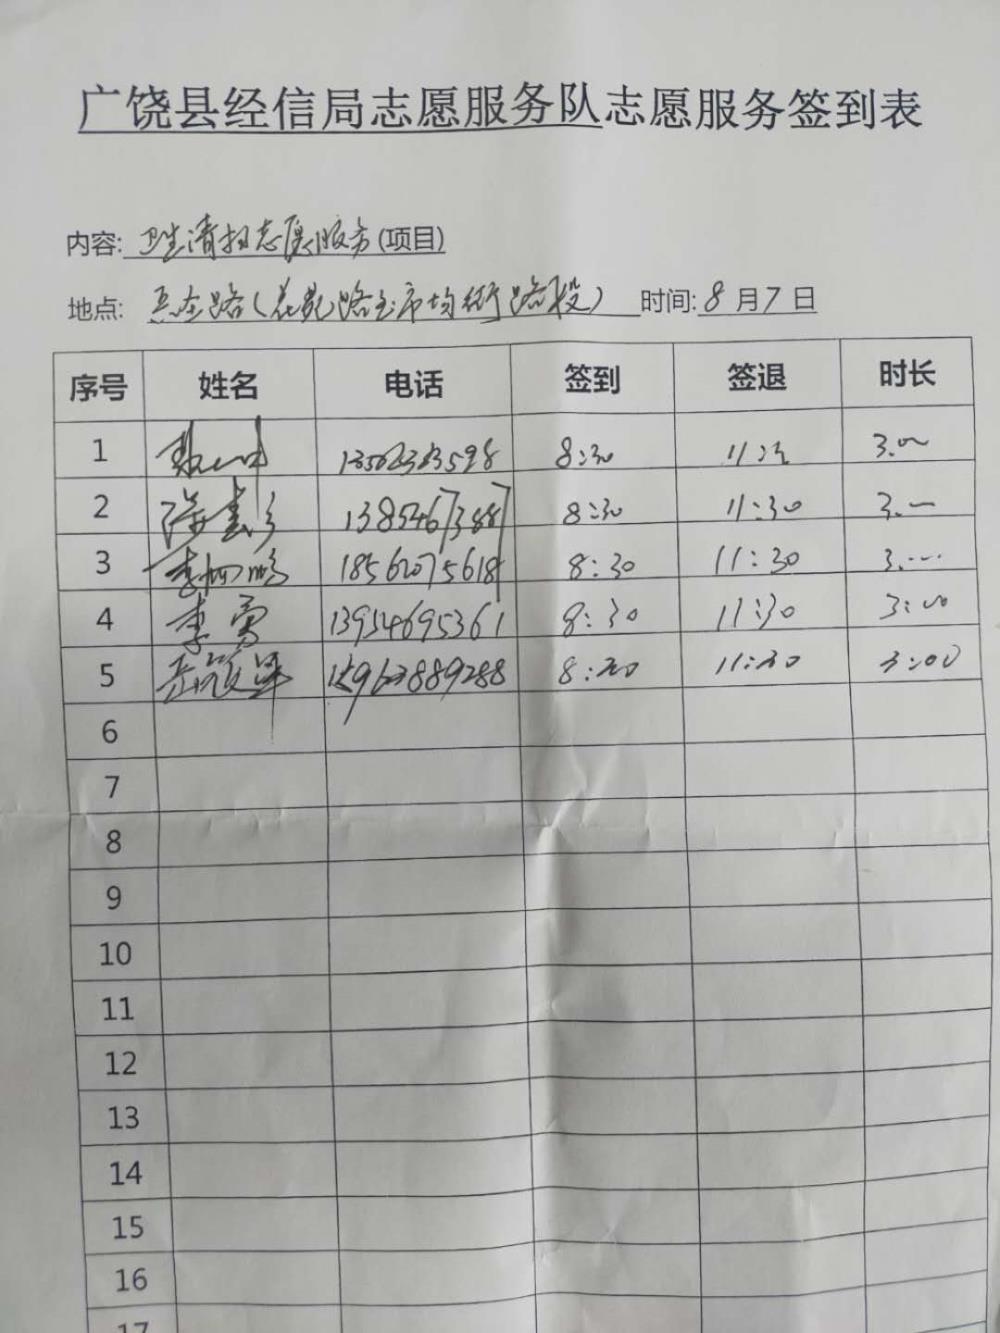 广饶县经信局志愿服务队志愿服务签到表
内容: 卫生清扫志愿服务(项目)
地点: 路(花苑路至市场街路段) 时间: 8月7日
序号 姓名 电话 签到 签退 时长
1 8:30 3.00
2 13854673887 8:30 11:30 3.
3 李 18562075618 8:30 11:30 3.
4 李勇 13954695361 8:30 11:30 3:00
5 15963889288 8:30 11:30 3:00
6
7
8
9
10
11
12
13
14
15
16
17